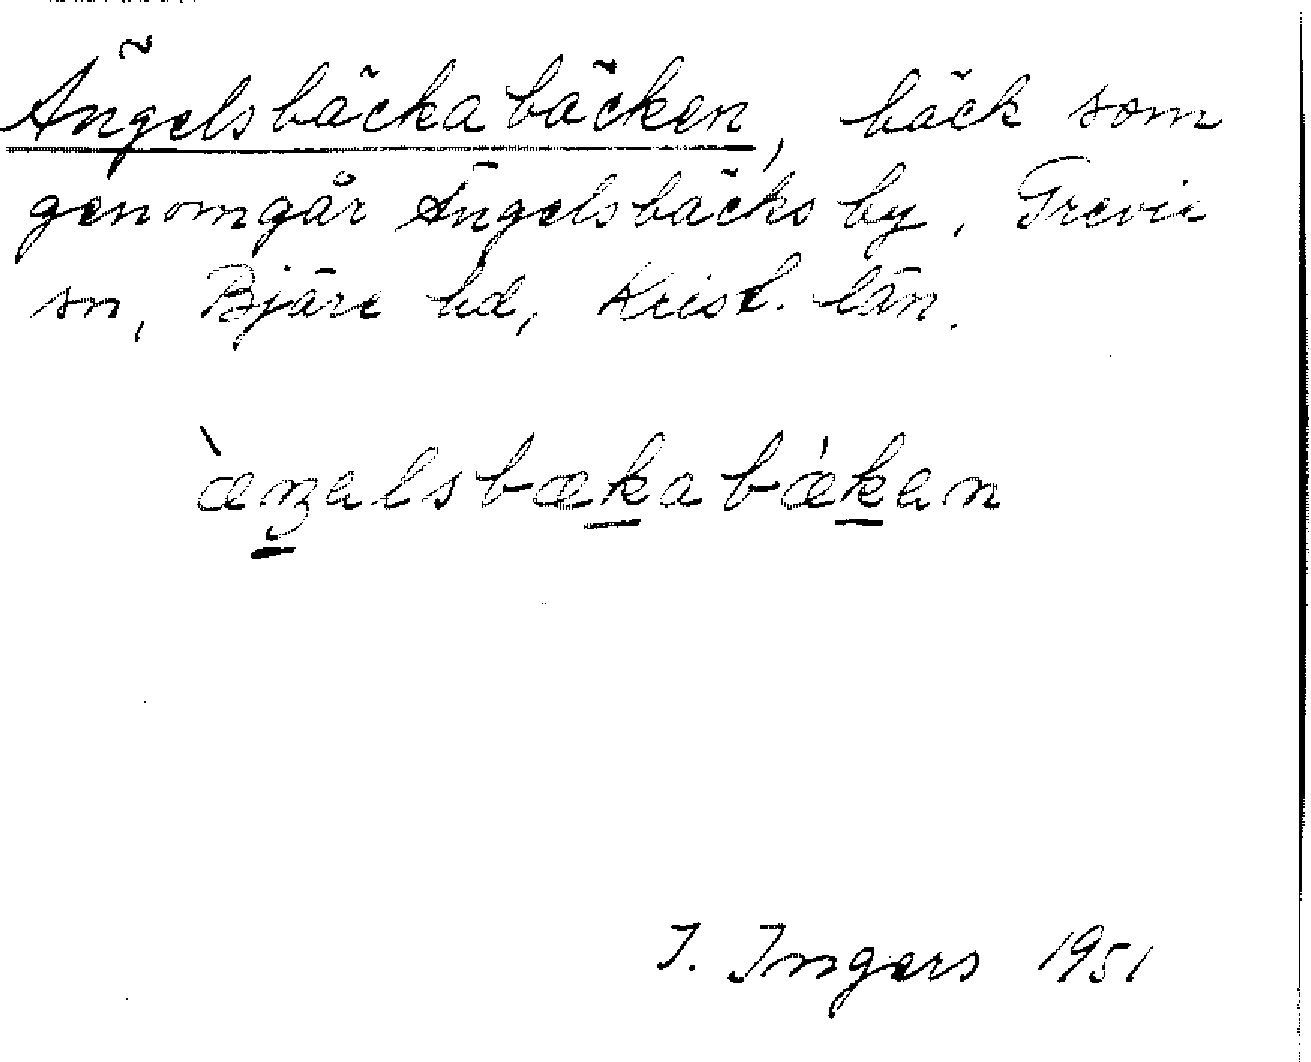 Ängelsbäckabäcken, bäck som
genomgår Ängelsbäcks by, Grevie
sn, Bjäre hd, Krist. län.
æŋalsbækabækan
I. Ingers 1951